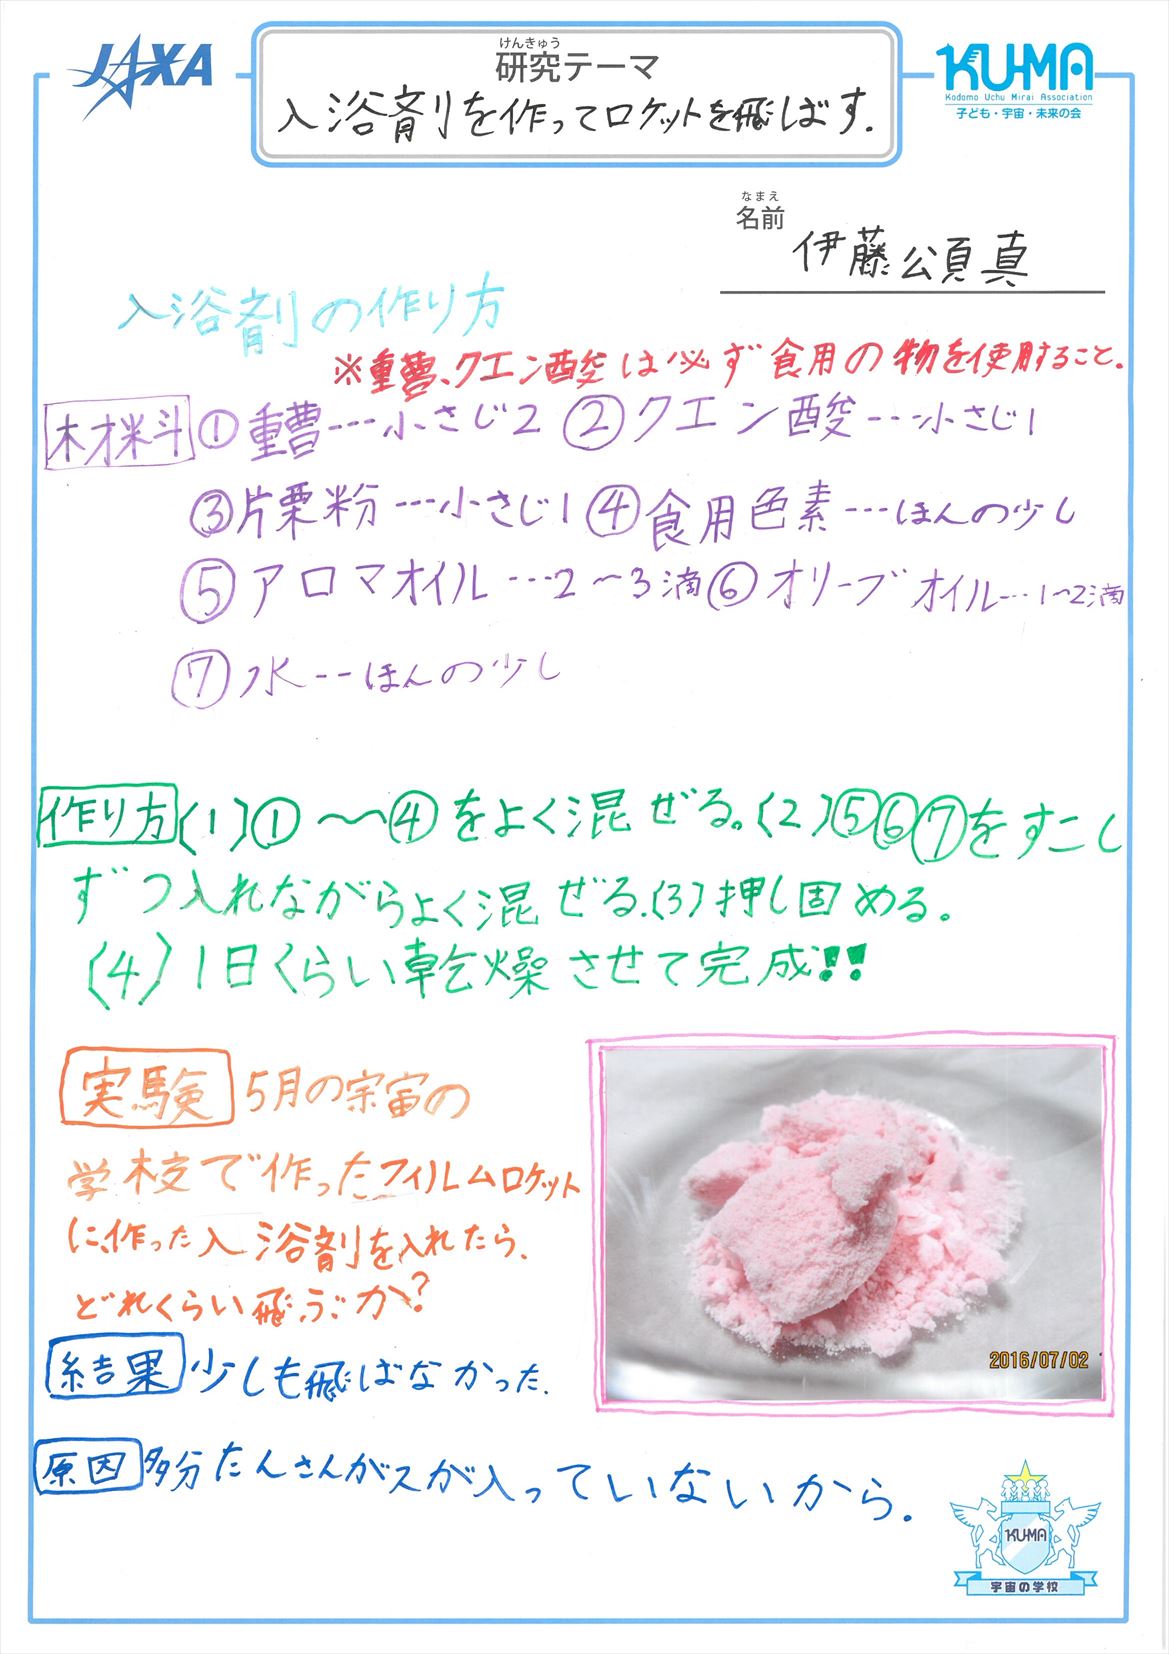 JAXA
けんきゅう
研究テーマ
KU-MA
Kodomo Uchu Mirai Association
子ども・宇宙・未来の会
入浴剤を作ってロケットを飛ばす.
なまえ
名前
伊藤公頁真
入浴剤の作り方
※重曹、クエン酸は必ず食用の物を使用すること.
材料 ①重曹---小さじ2 ②クエン酸---小さじ1
③片栗粉---小さじ1 ④食用色素---ほんの少し
⑤アロマオイル---2〜3滴 ⑥オリーブオイル---1〜2滴
⑦水---ほんの少し
作り方 (1)①〜④をよく混ぜる。(2)⑤⑥⑦をすこし
ずつ入れながらよく混ぜる.(3)押し固める.
(4)1日くらい乾燥させて完成!!
実験 5月の宇宙の
学校で作ったフィルムロケット
に作った入浴剤を入れたら、
どれくらい飛ぶか?
結果 少しも飛ばなかった.
2016/07/02
原因 多分たんさんガスが入っていないから.
KU-MA
宇宙の学校